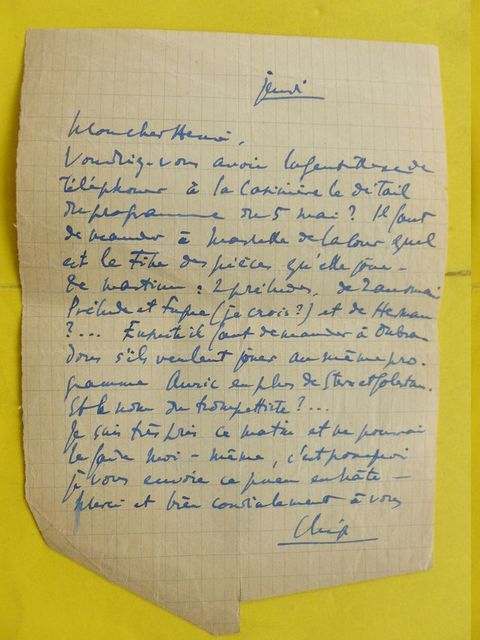 jeudi
Mon cher Henri,
Voudriez-vous avoir la gentillesse de
téléphoner à la le détail
du programme du 5 mai ? Il faut
demander à Marcelle de Lacour quel
est le titre des pièces qu'elle joue –
De Martinu : 2 préludes, de
Prélude et Fugue (je crois ?) et de
?... Ensuite il faut demander à Oubra-
dous s'ils veulent jouer au même pro-
gramme Auric en plus de Stern et Golestan.
Et le nom du trompettiste ?...
Je suis très pris ce matin et ne pourrai
le faire moi-même, c'est pourquoi
je vous envoie ce pneu en hâte –
Merci et bien cordialement à vous